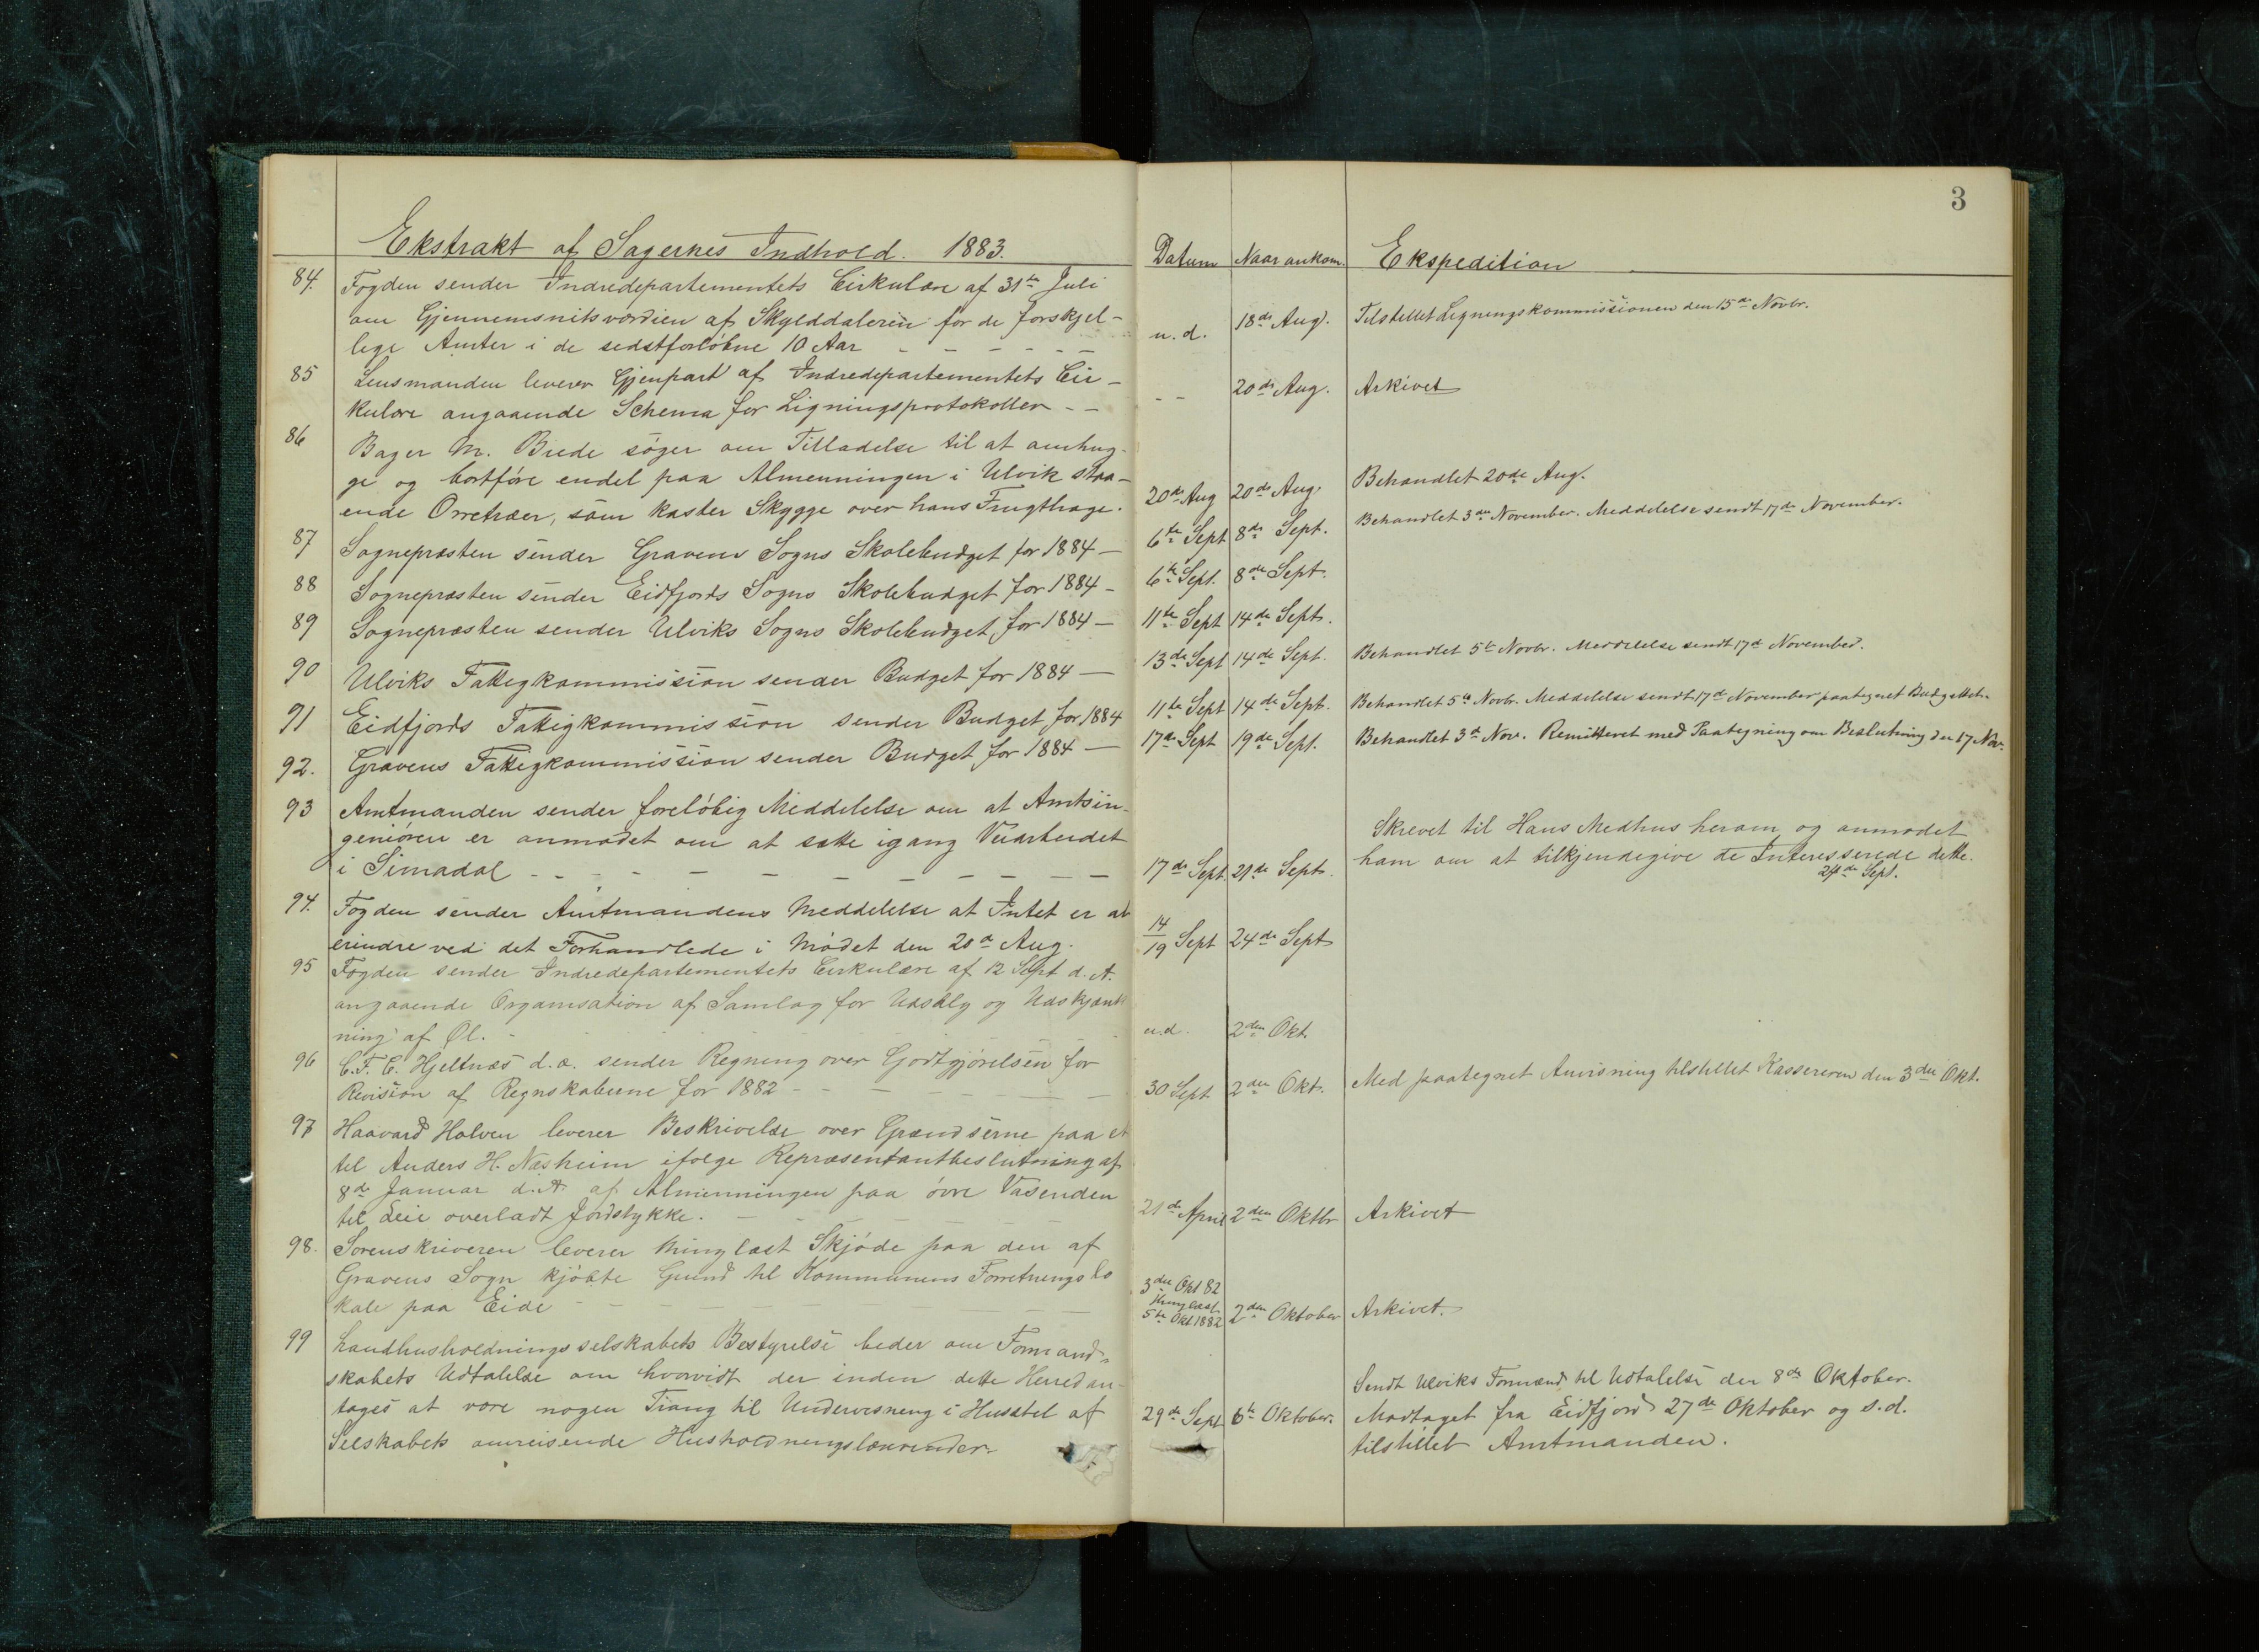 3
Ekstrakt af Sagernes Indhold. 1883.
Datum Naar ankom. Ekspedition
84. Fogden sender Indredepartementets Cirkulære af 31te Juli
om Gjennemsnitsværdien af Skylddaleren for de forskjel-
lige Amter i de sidstforløbne 10 Aar - - - - -
u. d. 18de Aug. Tilstillet Ligningskommissionen den 15de Novbr.
85 Lensmanden leverer Gjenpart af Indredepartementets Cir-
kulære angaaende Schema for Ligningsprotokollen - -
- - 20de Aug. Arkivet
86 Bager M. Brede søger om Tilladelse til at omhug-
ge og bortføre endel paa Almenningen i Ulvik staa-
ende Orretræer, som kaster Skygge over hans Frugthage.
20de Aug 20de Aug. Behandlet 20de Aug.
87 Sognepræsten sender Gravens Sogns Skolebudget for 1884 -
6te Sept 8de Sept. Behandlet 3die November. Meddelelse sendt 17de November.
88 Sognepræsten sender Eidfjords Sogns Skolebudget for 1884 -
6te Sept. 8de Sept.
89 Sognepræsten sender Ulviks Sogns Skolebudget for 1884 -
11te Sept 14de Sept.
90 Ulviks Fattigkommission sender Budget for 1884 -
13de Sept 14de Sept. Behandlet 5te Novbr. Meddelelse sendt 17de November.
91 Eidfjords Fattigkommission sender Budget for 1884
11te Sept 14de Sept. Behandlet 5te Novbr. Meddelelse sendt 17de November paategnet Budgettet.
92. Gravens Fattigkommission sender Budget for 1884 -
17de Sept 19de Sept. Behandlet 3de Nov. Remitteret med Paategning om Beslutning den 17 Nov.
93 Amtmanden sender foreløbig Meddelelse om at Amtsin-
geniøren er anmodet om at sætte igang Veiarbeidet
i Simadal - - - - - - - - -
17de Sept. 21de Sept. Skrevet til Hans Medhus herom og anmodet
ham om at tilkjendegive de Interesserede dette.
24de Sept.
94. Fogden sender Amtmandens Meddelelse at Intet er at
erindre ved det Forhandlede i Mødet den 20de Aug.
14/19 Sept 24de Sept
95 Fogden sender Indredepartementets Cirkulære af 12 Sept d. A.
angaaende Organisation af Samlag for Udsalg og Udskjænk
ning af Øl. - - - -
u.d. 2den Okt.
96 C. F. C. Hjeltnæs d.æ. sender Regning over Godtgjørelsen for
Revision af Regnskaberne for 1882 - - - - -
30 Sept 2den Okt. Med paategnet Anvisning tilstillet Kassereren den 3die Okt.
97 Haavard Halven leverer Beskrivelse over Grændserne paa et
til Anders H. Næsheim ifølge Repræsentantbeslutning af
8de Januar d. A. af Almenningen paa øvre Vasenden
til Leie overladt Jordstykke. - - - - -
21de April 2den Oktbr Arkivet
98. Sorenskriveren leverer thinglæst Skjøde paa den af
Gravens Sogn kjøbte Grund til Kommunens Forretningslo
kale paa Eide - - - - - -
3die Okt 82
thinglæst
5te Okt 1882 2den Oktober Arkivet.
99 Landhusholdningsselskabets Bestyrelse beder om Formand-
skabets Udtalelse om hvorvidt der inden dette Herred an-
tages at være nogen Trang til Undervisning i Husstel af
Selskabets omreisende Husholdningslærerinder.
29de Sept 6te Oktober. Sendt Ulviks Formænd til Udtalelse den 8de Oktober.
Modtaget fra Eidfjord 27de Oktober og s. d.
tilstillet Amtmanden.